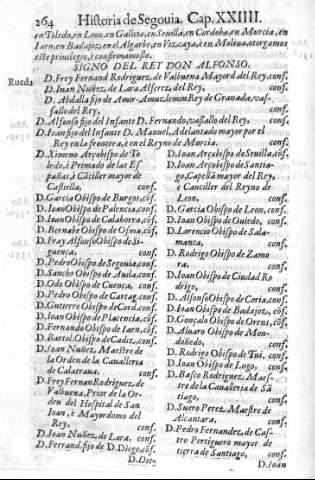 264 Historia de Segouia. Cap. XXIIII.
en Toledo, en Leon, en Galicia, en Seuilla, en Cordoba, en Murcia, en
Iaen, en Badajoz, en el Algarbe, en Vizcaya, è en Molina, otorgamos
este priuilegio, è confirmamoslo.
SIGNO DEL REY DON ALFONSO.
Rueda
D. Frey Fernand Rodriguez, de Valbuena Mayord. del Rey, conf.
D. Iuan Nuñez, de Lara Alferez, del Rey, conf.
D. Abdalla fijo de Amir Rey de Granada, vas-
sallo del Rey, conf.
D. Alfonso fijo del Infante D. Fernando, vassallo del Rey, conf.
D. Ioan fijo del Infante D. Manuel, Adelantado mayor por el
Rey en la frontera, è en el Reyno de Murcia. conf.
D. Ximeno Arçobispo de To-
ledo, è Primado de las Es-
pañas, è Cãciller mayor de
Castiella, conf.
D. Garcia Obispo de Burgos, cõf.
D. Ioan Obispo de Palencia, conf.
D. Ioan Obispo de Calahorra, cõf.
D. Bernabe Obispo de Osma, cõf.
D. Fray Alfonso Obispo de Si-
guença, conf.
D. Pedro Obispo de Segouia, conf.
D. Sancho Obispo de Auila, conf.
D. Odo Obispo de Cuenca, conf.
D. Pedro Obispo de Cartag. conf.
D. Gutierre Obispo de Cord. conf.
D. Ioan Obispo de Placencia, cõf.
D. Fernando Obispo de Iaen, cõf.
D. Bartol. Obispo de Cadiz, conf.
D. Ioan Nuñez, Maestre de
la Orden de la Caualleria
de Calatraua, conf.
D. Frey Fernan Rodriguez, de
Valbuena, Prior de la Or-
den del Hospital de San
Ioan, è Mayordomo del
Rey, conf.
D. Ioan Nuñez, de Lara, conf.
D. Ferrand, fijo de D. Diego, cõf.
D. Die-
D. Ioan Arçobispo de Seuilla, cõf.
D. Ioan Arçobispo de Santia-
go, Capellã mayor del Rey,
è Canciller del Reyno de
Leon, conf.
D. Garcia Obispo de Leon, conf.
D. Ioan Obispo de Ouiedo, conf.
D. Lorencio Obispo de Sala-
manca, conf.
D. Rodrigo Obispo de Zamo
ra, conf.
D. Ioan Obispo de Ciudad Ro
drigo, conf.
D. Alfonso Obispo de Coria, conf.
D. Ioan Obispo de Badajoz, cõf.
D. Gonzalo Obispo de Orens, cõf.
D. Aluaro Obispo de Mon-
doñedo, conf.
D. Rodrigo Obispo de Tui, conf.
D. Ioan Obispo de Lugo, conf.
D. Basco Rodriguez, Maes-
tre de la Caualleria de Sã
tiago, conf.
D. Suero Perez, Maestre de
Alcantara, conf.
D. Pedro Fernandez, de Cas-
tro Pertiguero mayor de
tierra de Santiago, conf.
D. Ioan